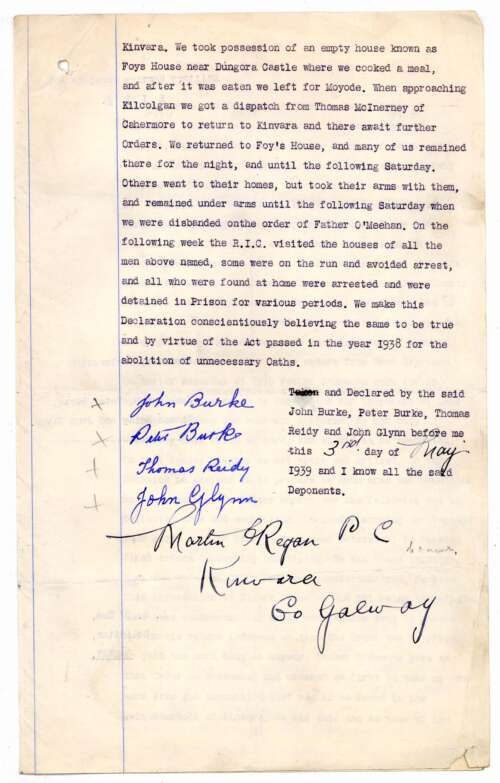 Kinvara. We took possession of an empty house known as
Foys House near Dungora Castle where we cooked a meal,
and after it was eaten we left for Moyode. When approaching
Kilcolgan we got a dispatch from Thomas McInerney of
Cahermore to return to Kinvara and there await further
Orders. We returned to Foy's House, and many of us remained
there for the night, and until the following Saturday.
Others went to their homes, but took their arms with them,
and remained under arms until the following Saturday when
we were disbanded onthe order of Father O'Meehan. On the
following week the R.I.C. visited the houses of all the
men above named, some were on the run and avoided arrest,
and all who were found at home were arrested and were
detained in Prison for various periods. We make this
Declaration conscientiously believing the same to be true
and by virtue of the Act passed in the year 1938 for the
abolition of unnecessary Oaths.
Taken and Declared by the said
John Burke, Peter Burke, Thomas
Reidy and John Glynn before me
this 3rd day of May
1939 and I know all the said
Deponents.
x John Burke
x Peter Burke
x Thomas Reidy
x John Glynn
Martin O'Regan P C
Kinvara
Co Galway